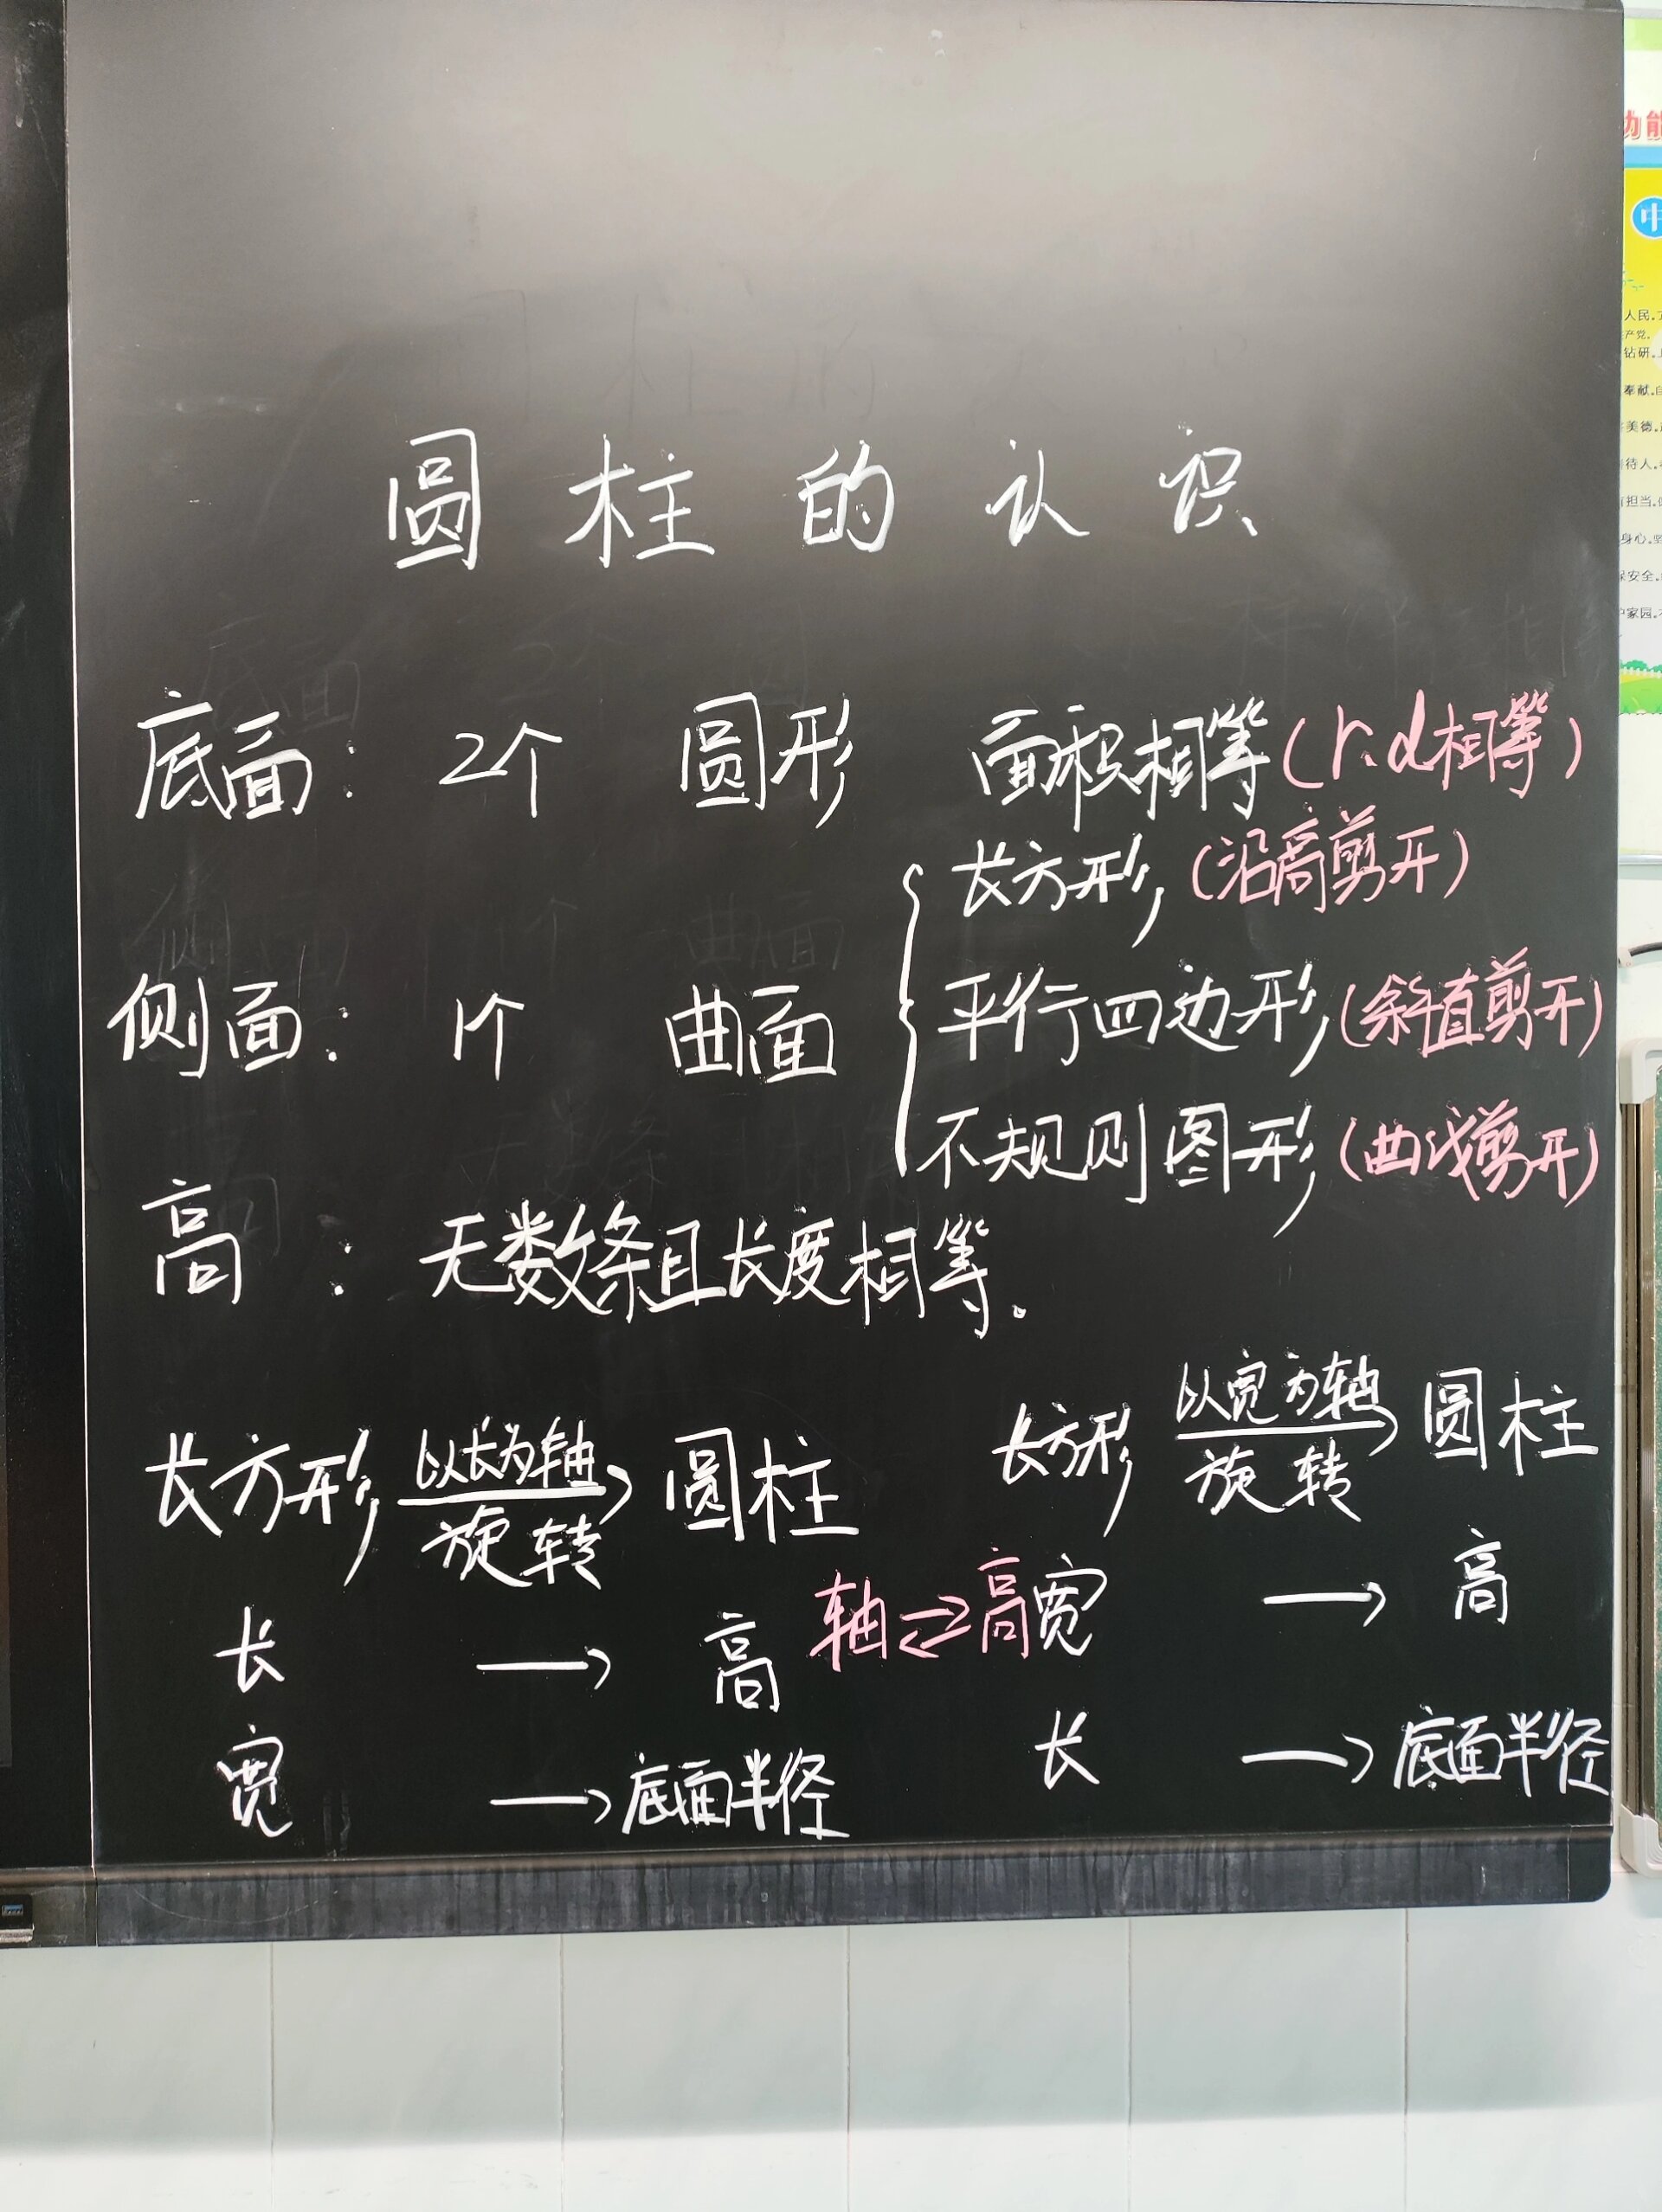 圆柱的认识
底面： 2个 圆形 面积相等(r、d相等)
长方形(沿高剪开)
侧面： 1个 曲面 平行四边形(斜直剪开)
不规则图形(曲线剪开)
高： 无数条且长度相等。
长方形 以长为轴旋转→ 圆柱
长 → 高
宽 → 底面半径
轴⇌高
长方形 以宽为轴旋转→ 圆柱
宽 → 高
长 → 底面半径
功能
中
人民。
产党。
钻研。
奉献。
美德。
待人。
担当。
身心。
保安全。
家园。